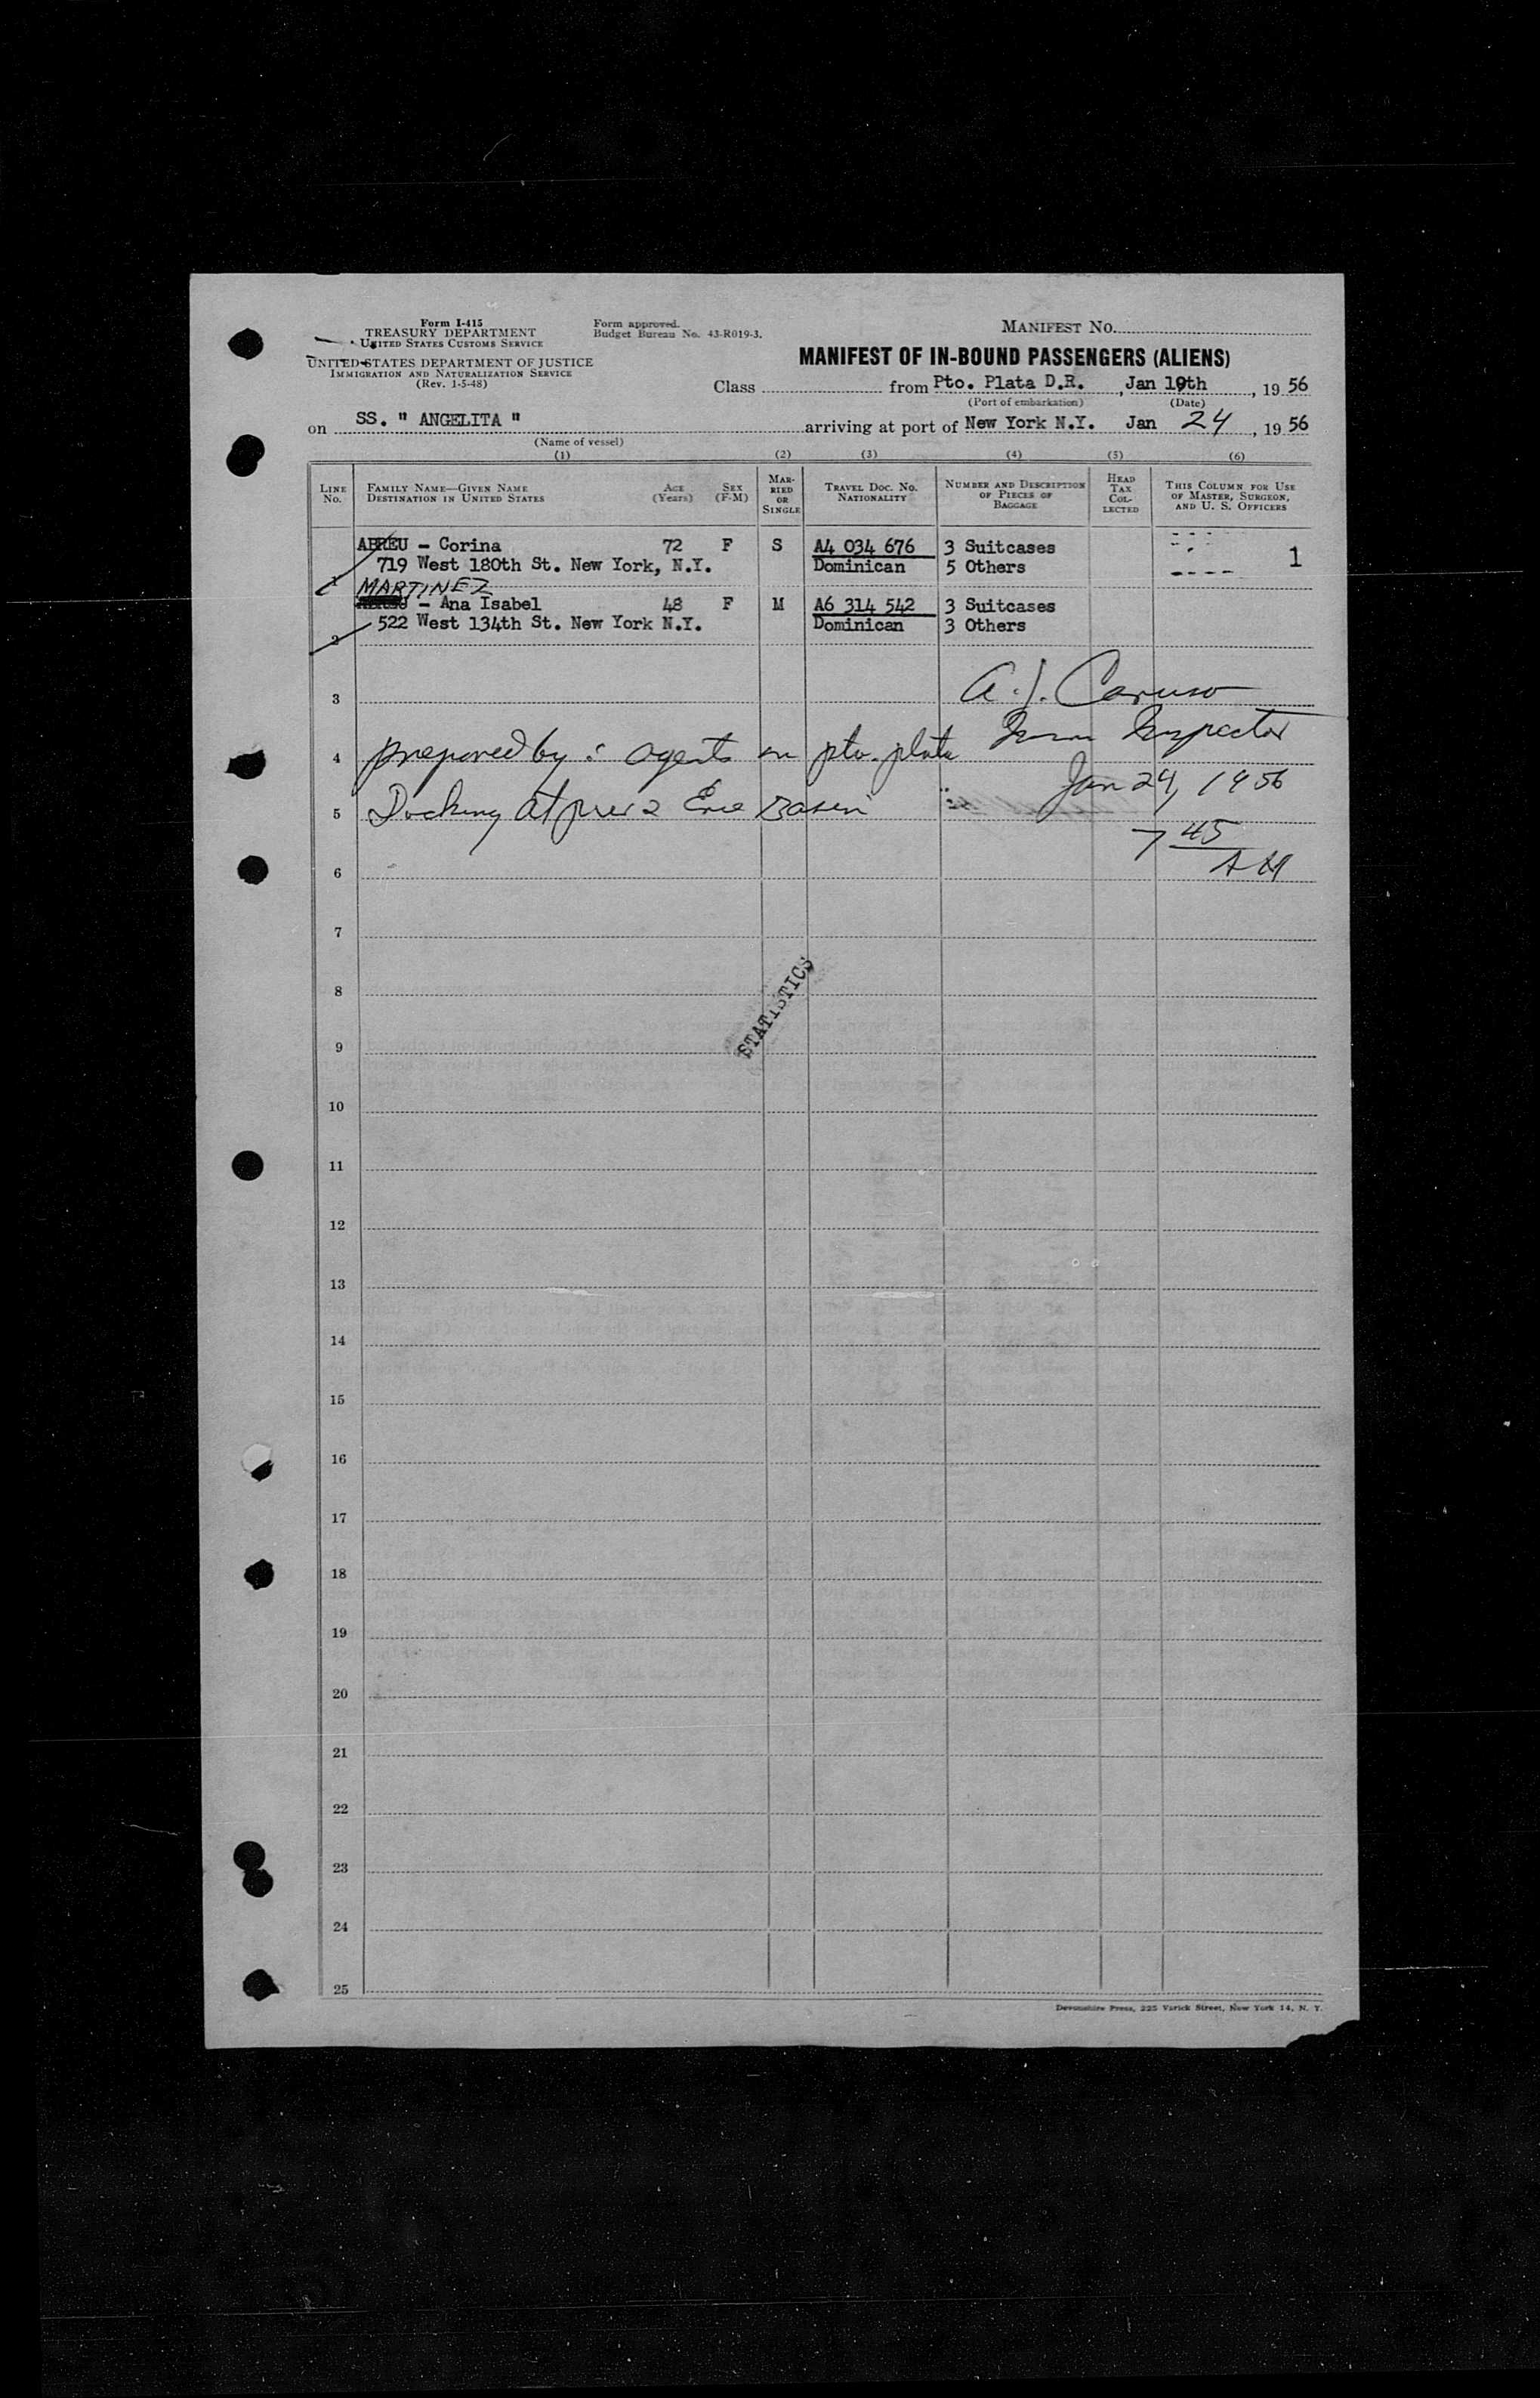 Form I-415
TREASURY DEPARTMENT
UNITED STATES CUSTOMS SERVICE
UNITED STATES DEPARTMENT OF JUSTICE
IMMIGRATION AND NATURALIZATION SERVICE
(Rev. 1-5-48)
Form approved.
Budget Bureau No. 43-R019-3.
MANIFEST NO.
MANIFEST OF IN-BOUND PASSENGERS (ALIENS)
Class from Pto. Plata D.R., Jan 19th, 1956
(Port of embarkation) (Date)
on SS. " ANGELITA " arriving at port of New York N.Y. Jan 24, 1956
(Name of vessel)
(1) (2) (3) (4) (5) (6)
LINE NO.
FAMILY NAME—GIVEN NAME
DESTINATION IN UNITED STATES
AGE (Years)
SEX (F-M)
MARRIED OR SINGLE
TRAVEL DOC. NO.
NATIONALITY
NUMBER AND DESCRIPTION OF PIECES OF BAGGAGE
HEAD TAX COLLECTED
THIS COLUMN FOR USE OF MASTER, SURGEON, AND U. S. OFFICERS
ABREU - Corina 72 F S A4 034 676 3 Suitcases 1
719 West 180th St. New York, N.Y. Dominican 5 Others
1
MARTINEZ
- Ana Isabel 48 F M A6 314 542 3 Suitcases
522 West 134th St. New York N.Y. Dominican 3 Others
2
3 A. J. Caruso
Inspector
4 prepared by: agents in pto. plata
Jan 24, 1956
5 Docking at pier 2 Erie Basin
7 45
AM
6
7
STATISTICS
8
9
10
11
12
13
14
15
16
17
18
19
20
21
22
23
24
25
Devonshire Press, 225 Varick Street, New York 14, N. Y.